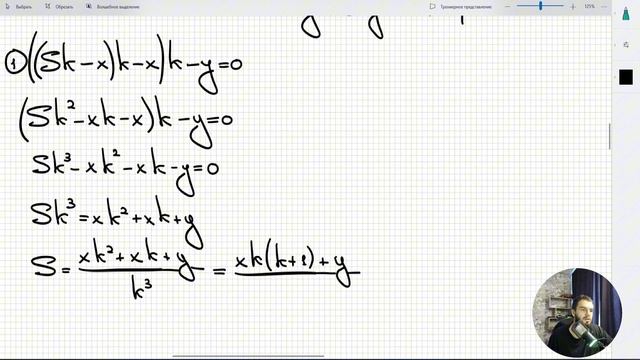 Выбрать Обрезать Волшебное выделение Трехмерное представление 125%
① ((Sk-x)k-x)k-y=0
(Sk²-xk-x)k-y=0
Sk³-xk²-xk-y=0
Sk³=xk²+xk+y
S= xk²+xk+y / k³ = xk(k+1)+y